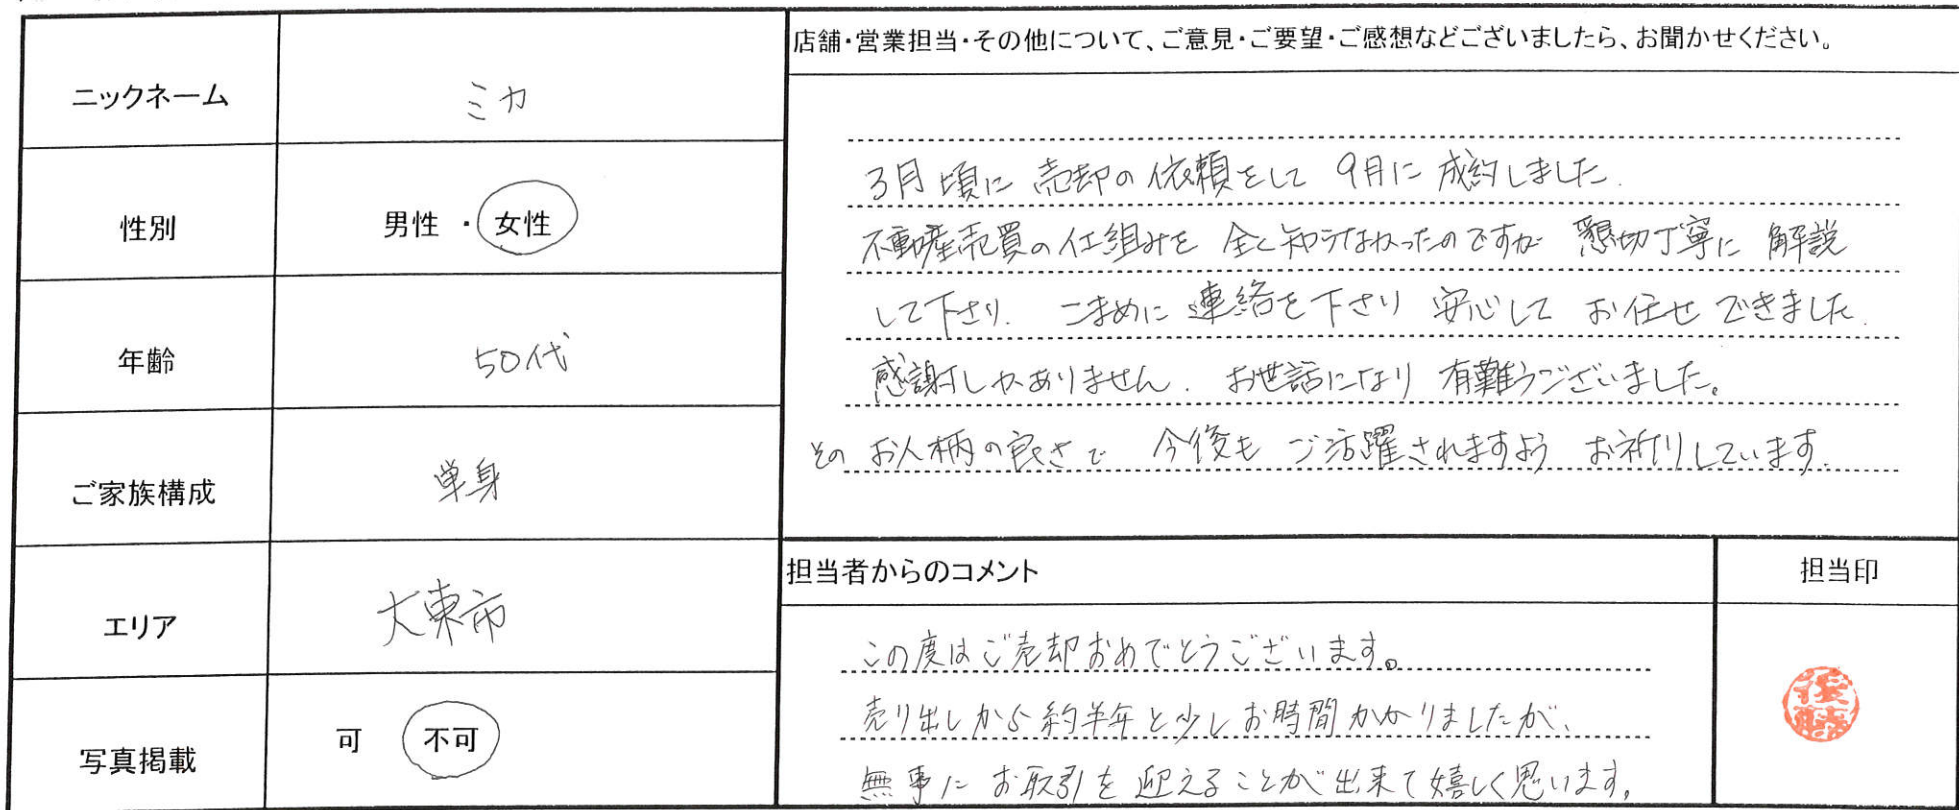 ニックネーム ミカ
性別 男性 ・ 女性
年齢 50代
ご家族構成 単身
エリア 大東市
写真掲載 可 不可
店舗・営業担当・その他について、ご意見・ご要望・ご感想などございましたら、お聞かせください。
3月頃に 売却の依頼をして 9月に 成約しました.
不動産売買の仕組みを 全く知らなかったのですが 懇切丁寧に 解説
して下さり. こまめに 連絡を下さり 安心して お任せ できました.
感謝しかありません. お世話になり 有難うございました。
その お人柄の良さで 今後も ご活躍されますよう お祈りしています.
担当者からのコメント
この度はご売却おめでとうございます。
売り出しから約半年と少しお時間かかりましたが、
無事に お取引を 迎えることが 出来て嬉しく思います。
担当印
後藤